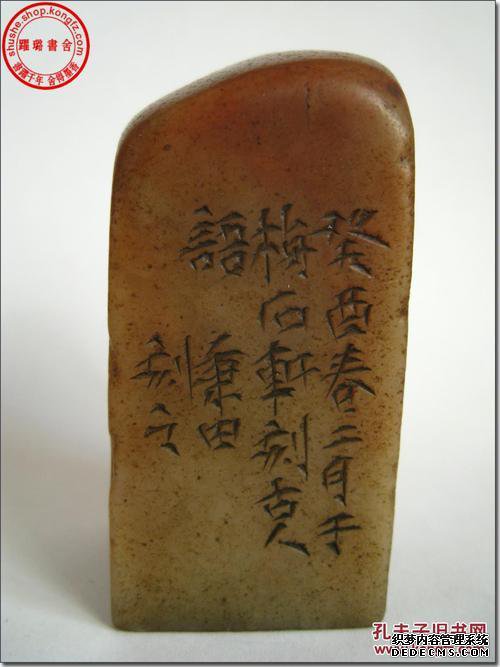 shushe.shop.kongfz.com
躍璐書舍
癸酉春二月于
梅石軒刻古人
語
秉田
刻之
孔夫子旧书网
织梦内容管理系统
DEDECMS.COM